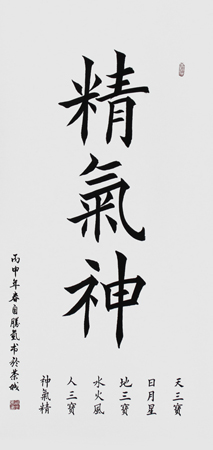 精氣神
天三寶
日月星
地三寶
水火風
人三寶
神氣精
丙申年春自騰氣书於榮城